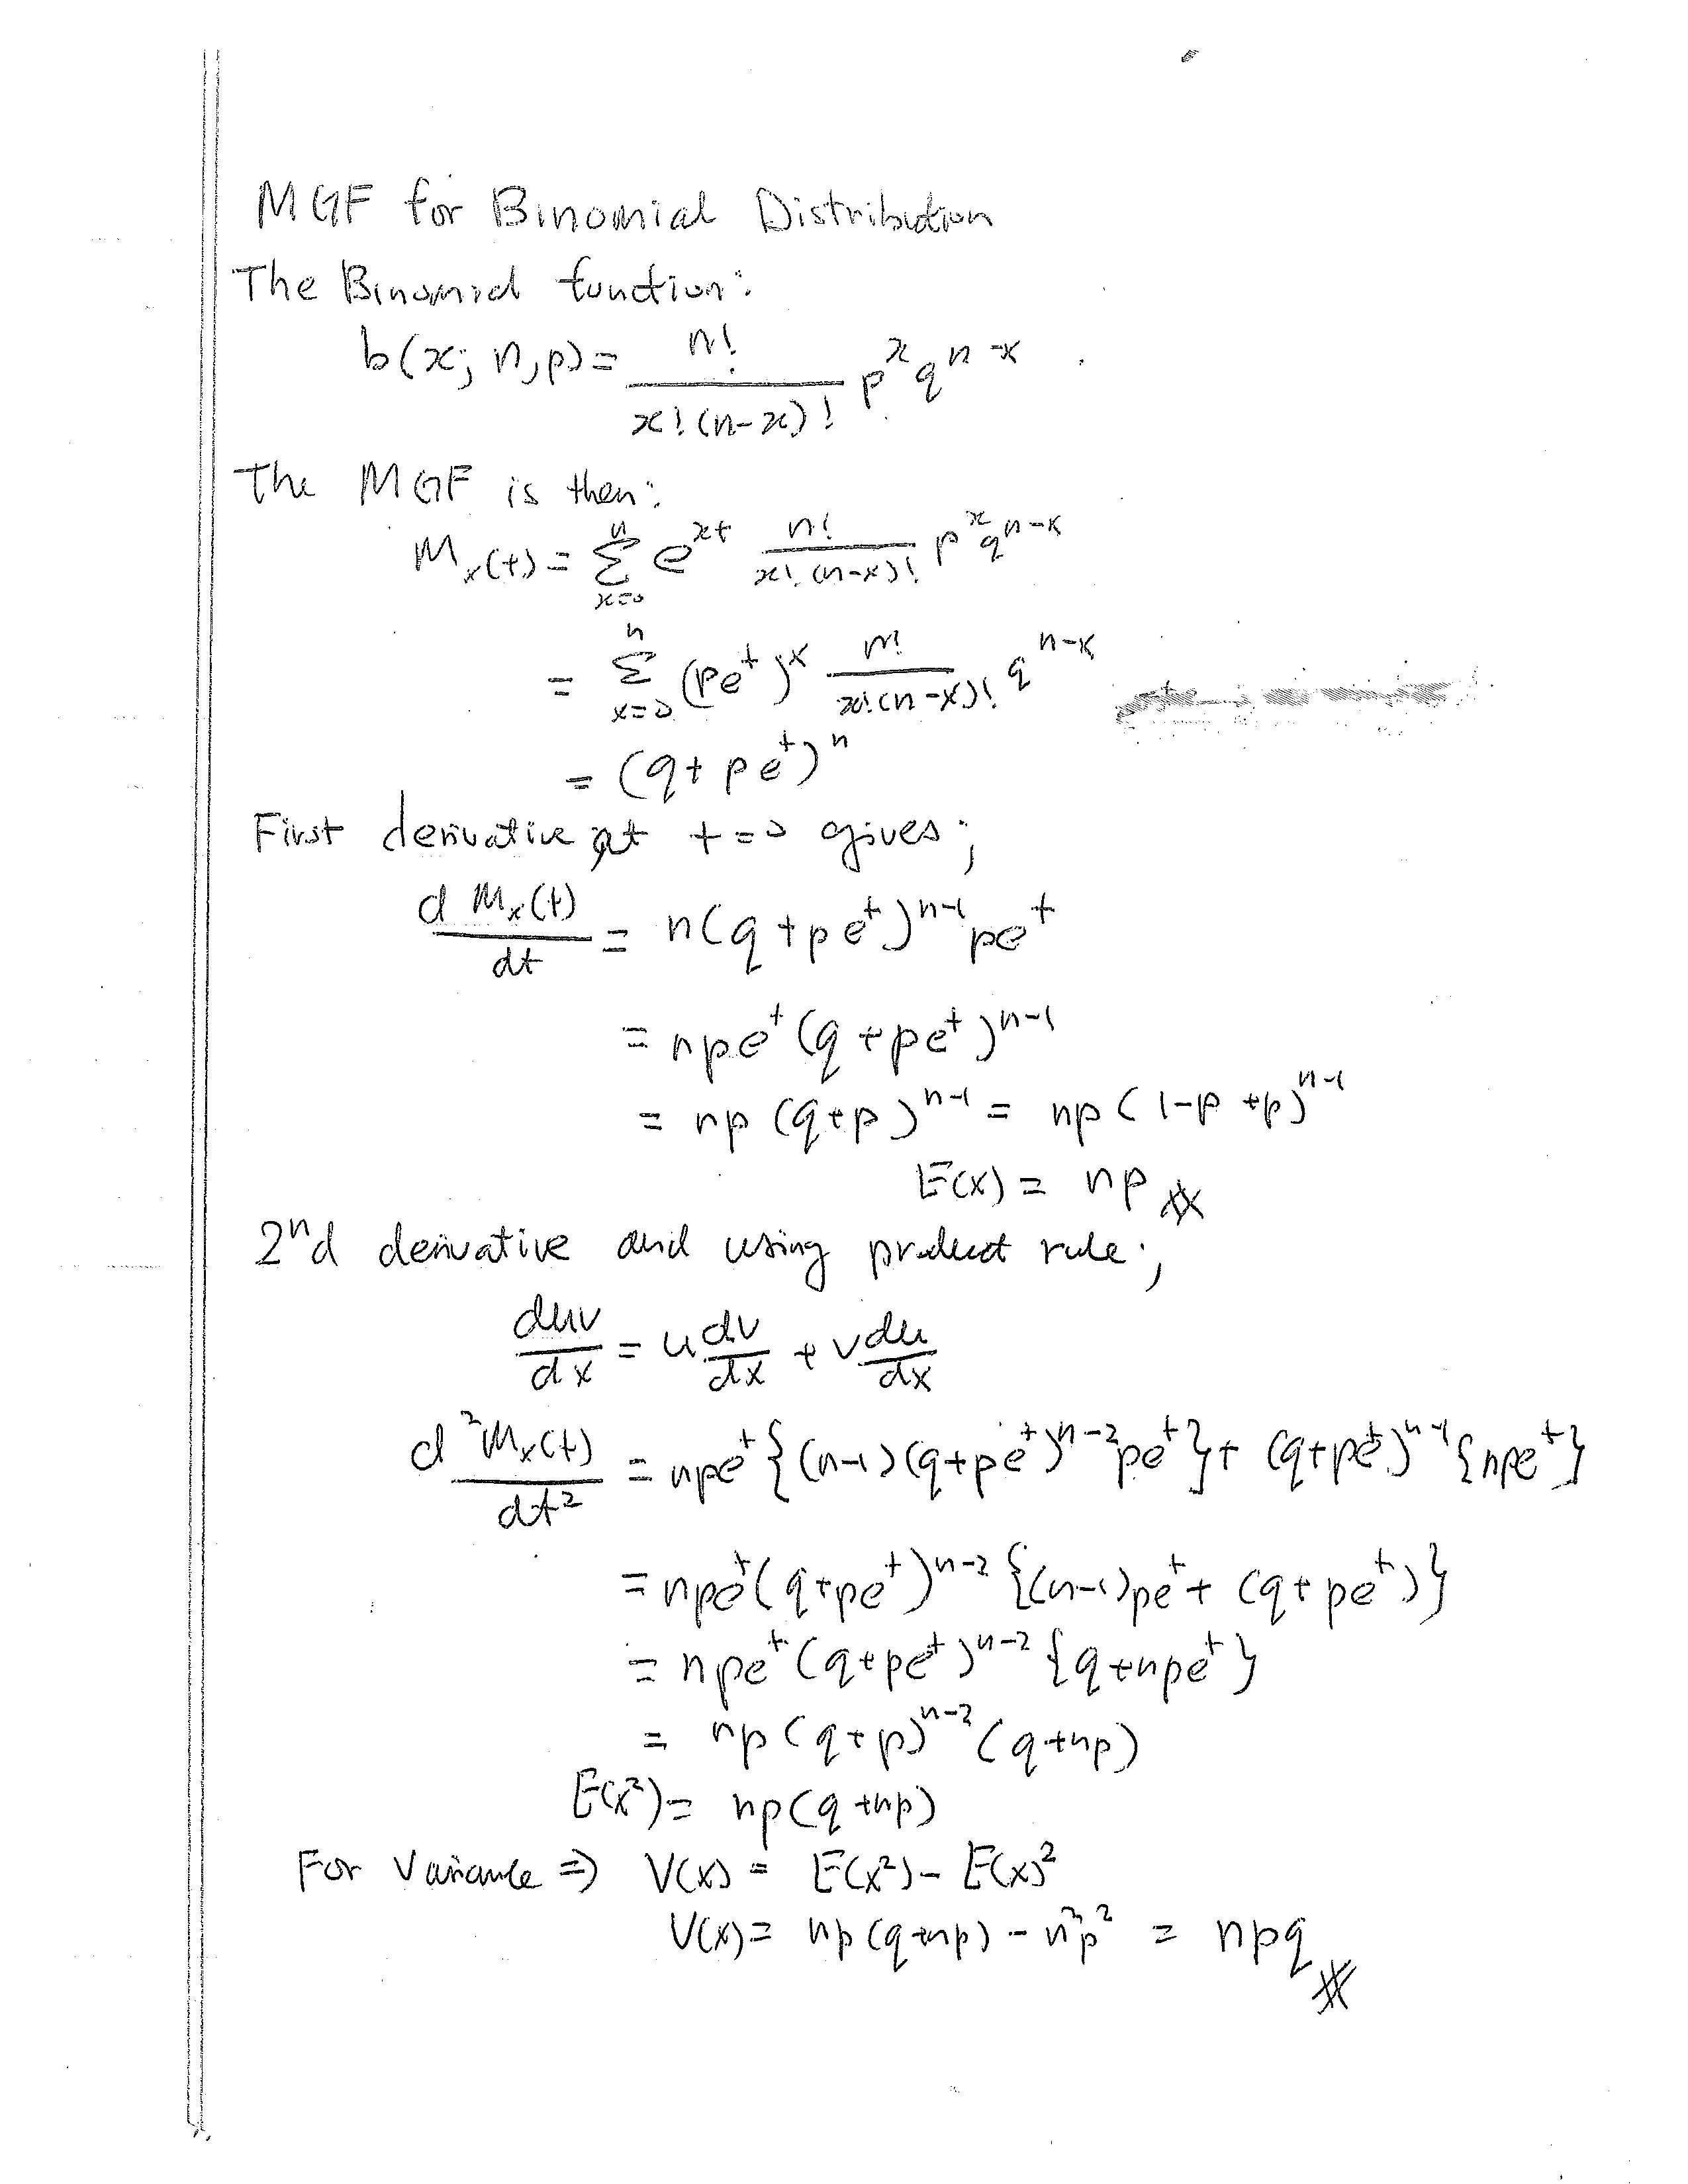 MGF for Binomial Distribution
The Binomial function:
b(x; n,p) = n! / x!(n-x)! p^x q^(n-x)
The MGF is then:
M_x(t) = Σ_{x=0}^{n} e^(xt) n! / x!(n-x)! p^x q^(n-x)
= Σ_{x=0}^{n} (pe^t)^x n! / x!(n-x)! q^(n-x)
= (q+pe^t)^n
First derivative at t=0 gives;
d M_x(t) / dt = n(q+pe^t)^(n-1) pe^t
= npe^t (q+pe^t)^(n-1)
= np (q+p)^(n-1) = np (1-p+p)^(n-1)
E(x) = np
2nd derivative and using product rule;
duv/dx = u dv/dx + v du/dx
d²M_x(t) / dt² = npe^t {(n-1)(q+pe^t)^(n-2) pe^t} + (q+pe^t)^(n-1) {npe^t}
= npe^t (q+pe^t)^(n-2) {(n-1)pe^t + (q+pe^t)}
= npe^t (q+pe^t)^(n-2) {q+npe^t}
= np (q+p)^(n-2) (q+np)
E(x²) = np(q+np)
For Variance ⇒ V(x) = E(x²) - E(x)²
V(x) = np(q+np) - n²p² = npq